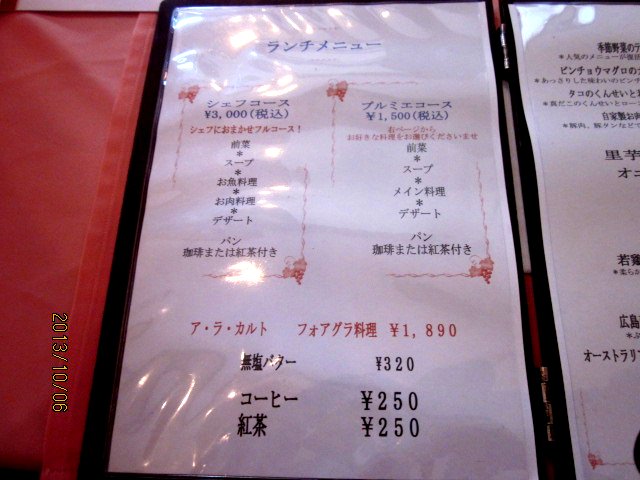 ランチメニュー
シェフコース
¥3,000(税込)
シェフにおまかせフルコース!
前菜
*
スープ
*
お魚料理
*
お肉料理
*
デザート
パン
珈琲または紅茶付き
プルミエコース
¥1,500(税込)
右ページから
お好きな料理をお選びくださいませ
前菜
*
スープ
*
メイン料理
*
デザート
パン
珈琲または紅茶付き
ア・ラ・カルト フォアグラ料理 ¥1,890
無塩バター ¥320
コーヒー ¥250
紅茶 ¥250
季節野菜の
*人気のメニューが
ビンチョウマグロの
*あっさりした味わいのビンチ
タコのくんせいと
*真だこのくんせいとロー
自家製お肉
*豚肉、豚タンなどで
里芋
オニ
若鶏
*柔らか
広島
オーストラリア
2013/10/06